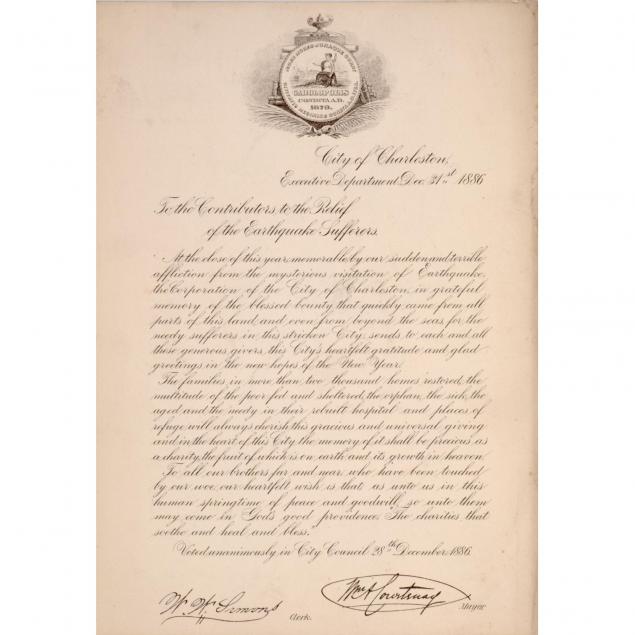 CAROLOPOLIS
CONDITA A.D.
1670.
City of Charleston,
Executive Department, Dec. 31st 1886
To the Contributors, to the Relief
of the Earthquake Sufferers.
At the close of this year, memorable by our sudden and terrible
affliction from the mysterious visitation of Earthquake,
the Corporation of the City of Charleston, in grateful
memory of the blessed bounty that quickly came from all
parts of this land, and even from beyond the seas, for the
needy sufferers in this stricken City, sends to each and all
these generous givers, this City's heartfelt gratitude and glad
greetings, in the new hopes of the New Year.
The families, in more than two thousand homes restored, the
multitude of the poor fed and sheltered, the orphan, the sick, the
aged and the needy in their rebuilt hospital and places of
refuge will always cherish this gracious and universal giving
and in the heart of this City, the memory of it shall be precious as
a charity, the fruit of which is on earth and its growth in heaven.
To all our brothers far and near, who have been touched
by our woe, our heartfelt wish is that, as unto us in this
human springtime of peace and goodwill, so unto them
may come in God's good providence, The charities that
soothe and heal and bless.
Voted unanimously in City Council 28th December 1886
W. W. Simons
Clerk.
Wm A Courtenay
Mayor